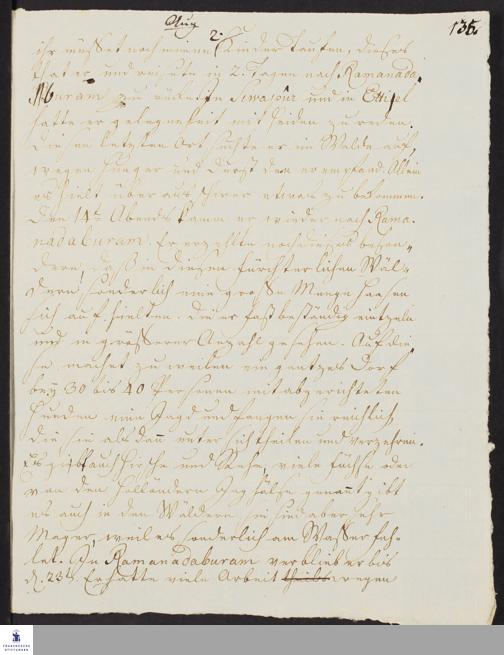 Aug
135.
ihr müsset noch meine 2 Kinder taufen, dieses
that er und reisete in 2. Tagen nach Ramanada,
buram, zu Siwapur und in Ettipel
hatte er gelegenheit mit Heiden zu reden.
Diesen letzten Ort suchte er im Walde auf,
wegen Hunger und Durst den er empfand. Allein
es hielt über aus schwer etwas zu bekommen.
Den 14t Abends kamm er wieder nach Rama-
nadaburam. Er erzehlte noch dieses beson-
dere, daß in diesen fürchterlichen Wäl-
dern sonderlich eine grosse Menge Haasen
sich auf hielten. Die er fast beständig eintzeln
und in grösserer Anzahl gesehen. Auf die-
se machet zu weilen ein gantzes Dorf
bey 30 bis 40 Personen mit abgerichteten
Hunden eine Jagd und fangen sie reichlich,
die sie als dan unter sich theilen und verzehren.
Es gibt auch Hirsche und Rehe, viele Füchse oder
von den Holländern Jag hälse genant gibt
es auch in den Wäldern, sie sind aber sehr
Mager, weil es sonderlich am Wasser feh-
let. In Ramanadaburam verblieb er bis
d. 23t. Er hatte viele Arbeit theils wegen
FRANCKESCHE STIFTUNGEN